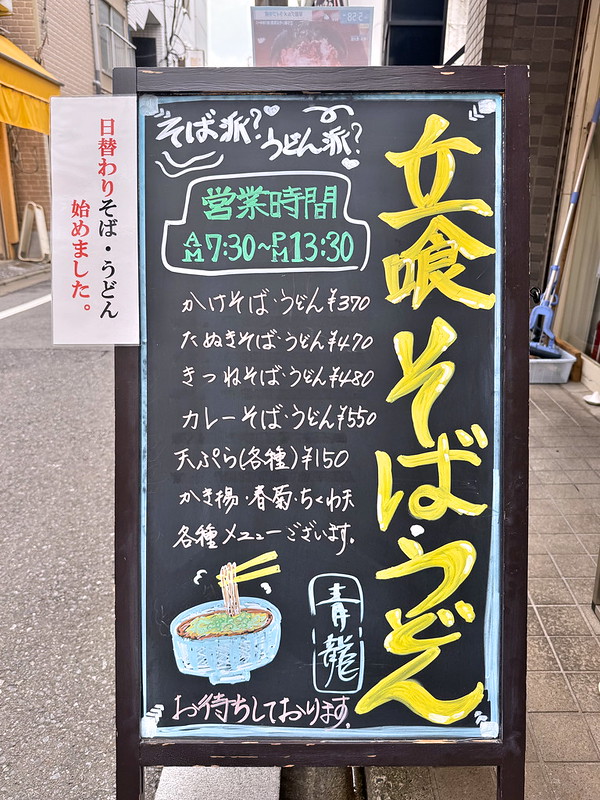 日替わりそば・うどん
始めました。
そば派?うどん派?
立喰そば・うどん
営業時間
AM7:30~PM13:30
かけそば・うどん¥370
たぬきそば・うどん¥470
きつねそば・うどん¥480
カレーそば・うどん¥550
天ぷら(各種)¥150
かき揚・春菊・ちくわ天
各種メニューございます。
青龍
お待ちしております。